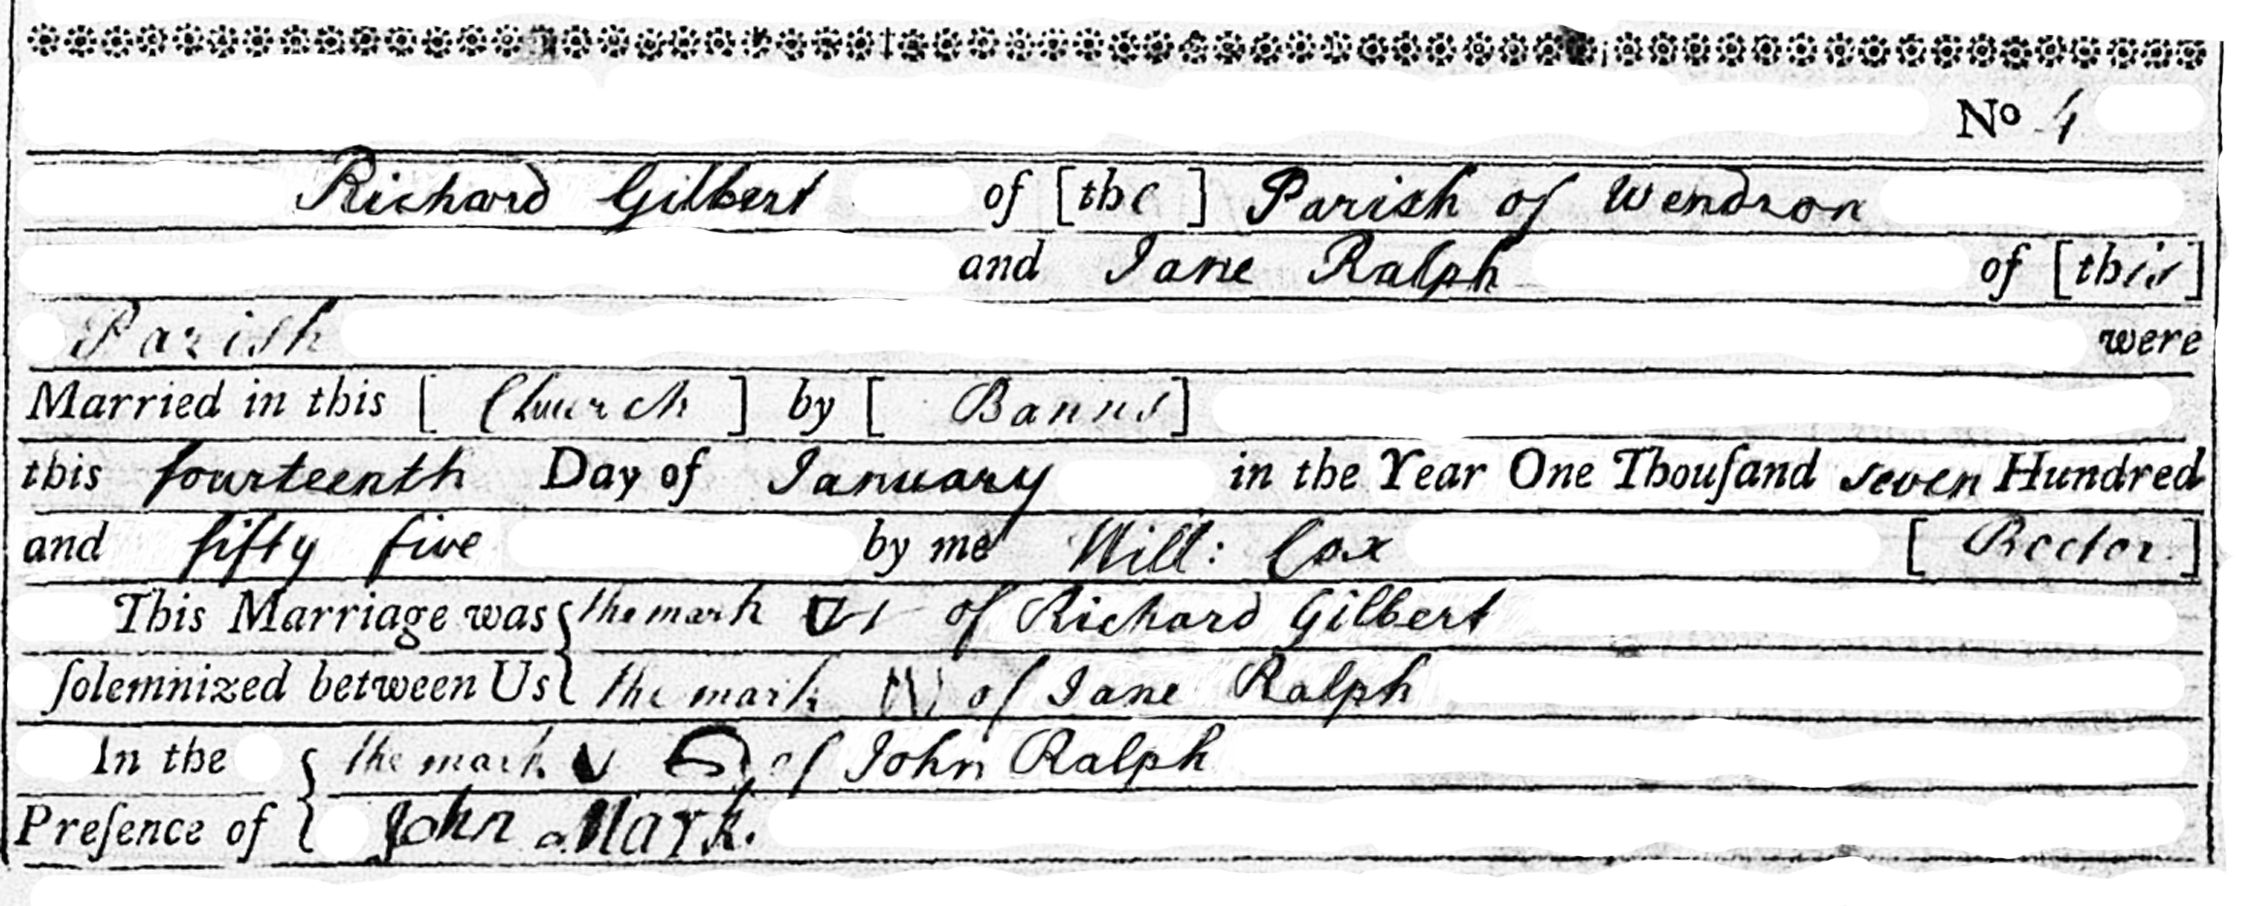 No 4
Richard Gilbert of [the ] Parish of Wendron
and Jane Ralph of [this]
Parish were
Married in this [ Church ] by [ Banns]
this fourteenth Day of January in the Year One Thouſand seven Hundred
and fifty five by me Will: Cox [ Rector.]
This Marriage was { the mark of Richard Gilbert
ſolemnized between Us { the mark of Jane Ralph
In the { the mark of John Ralph
Preſence of { John Mark.